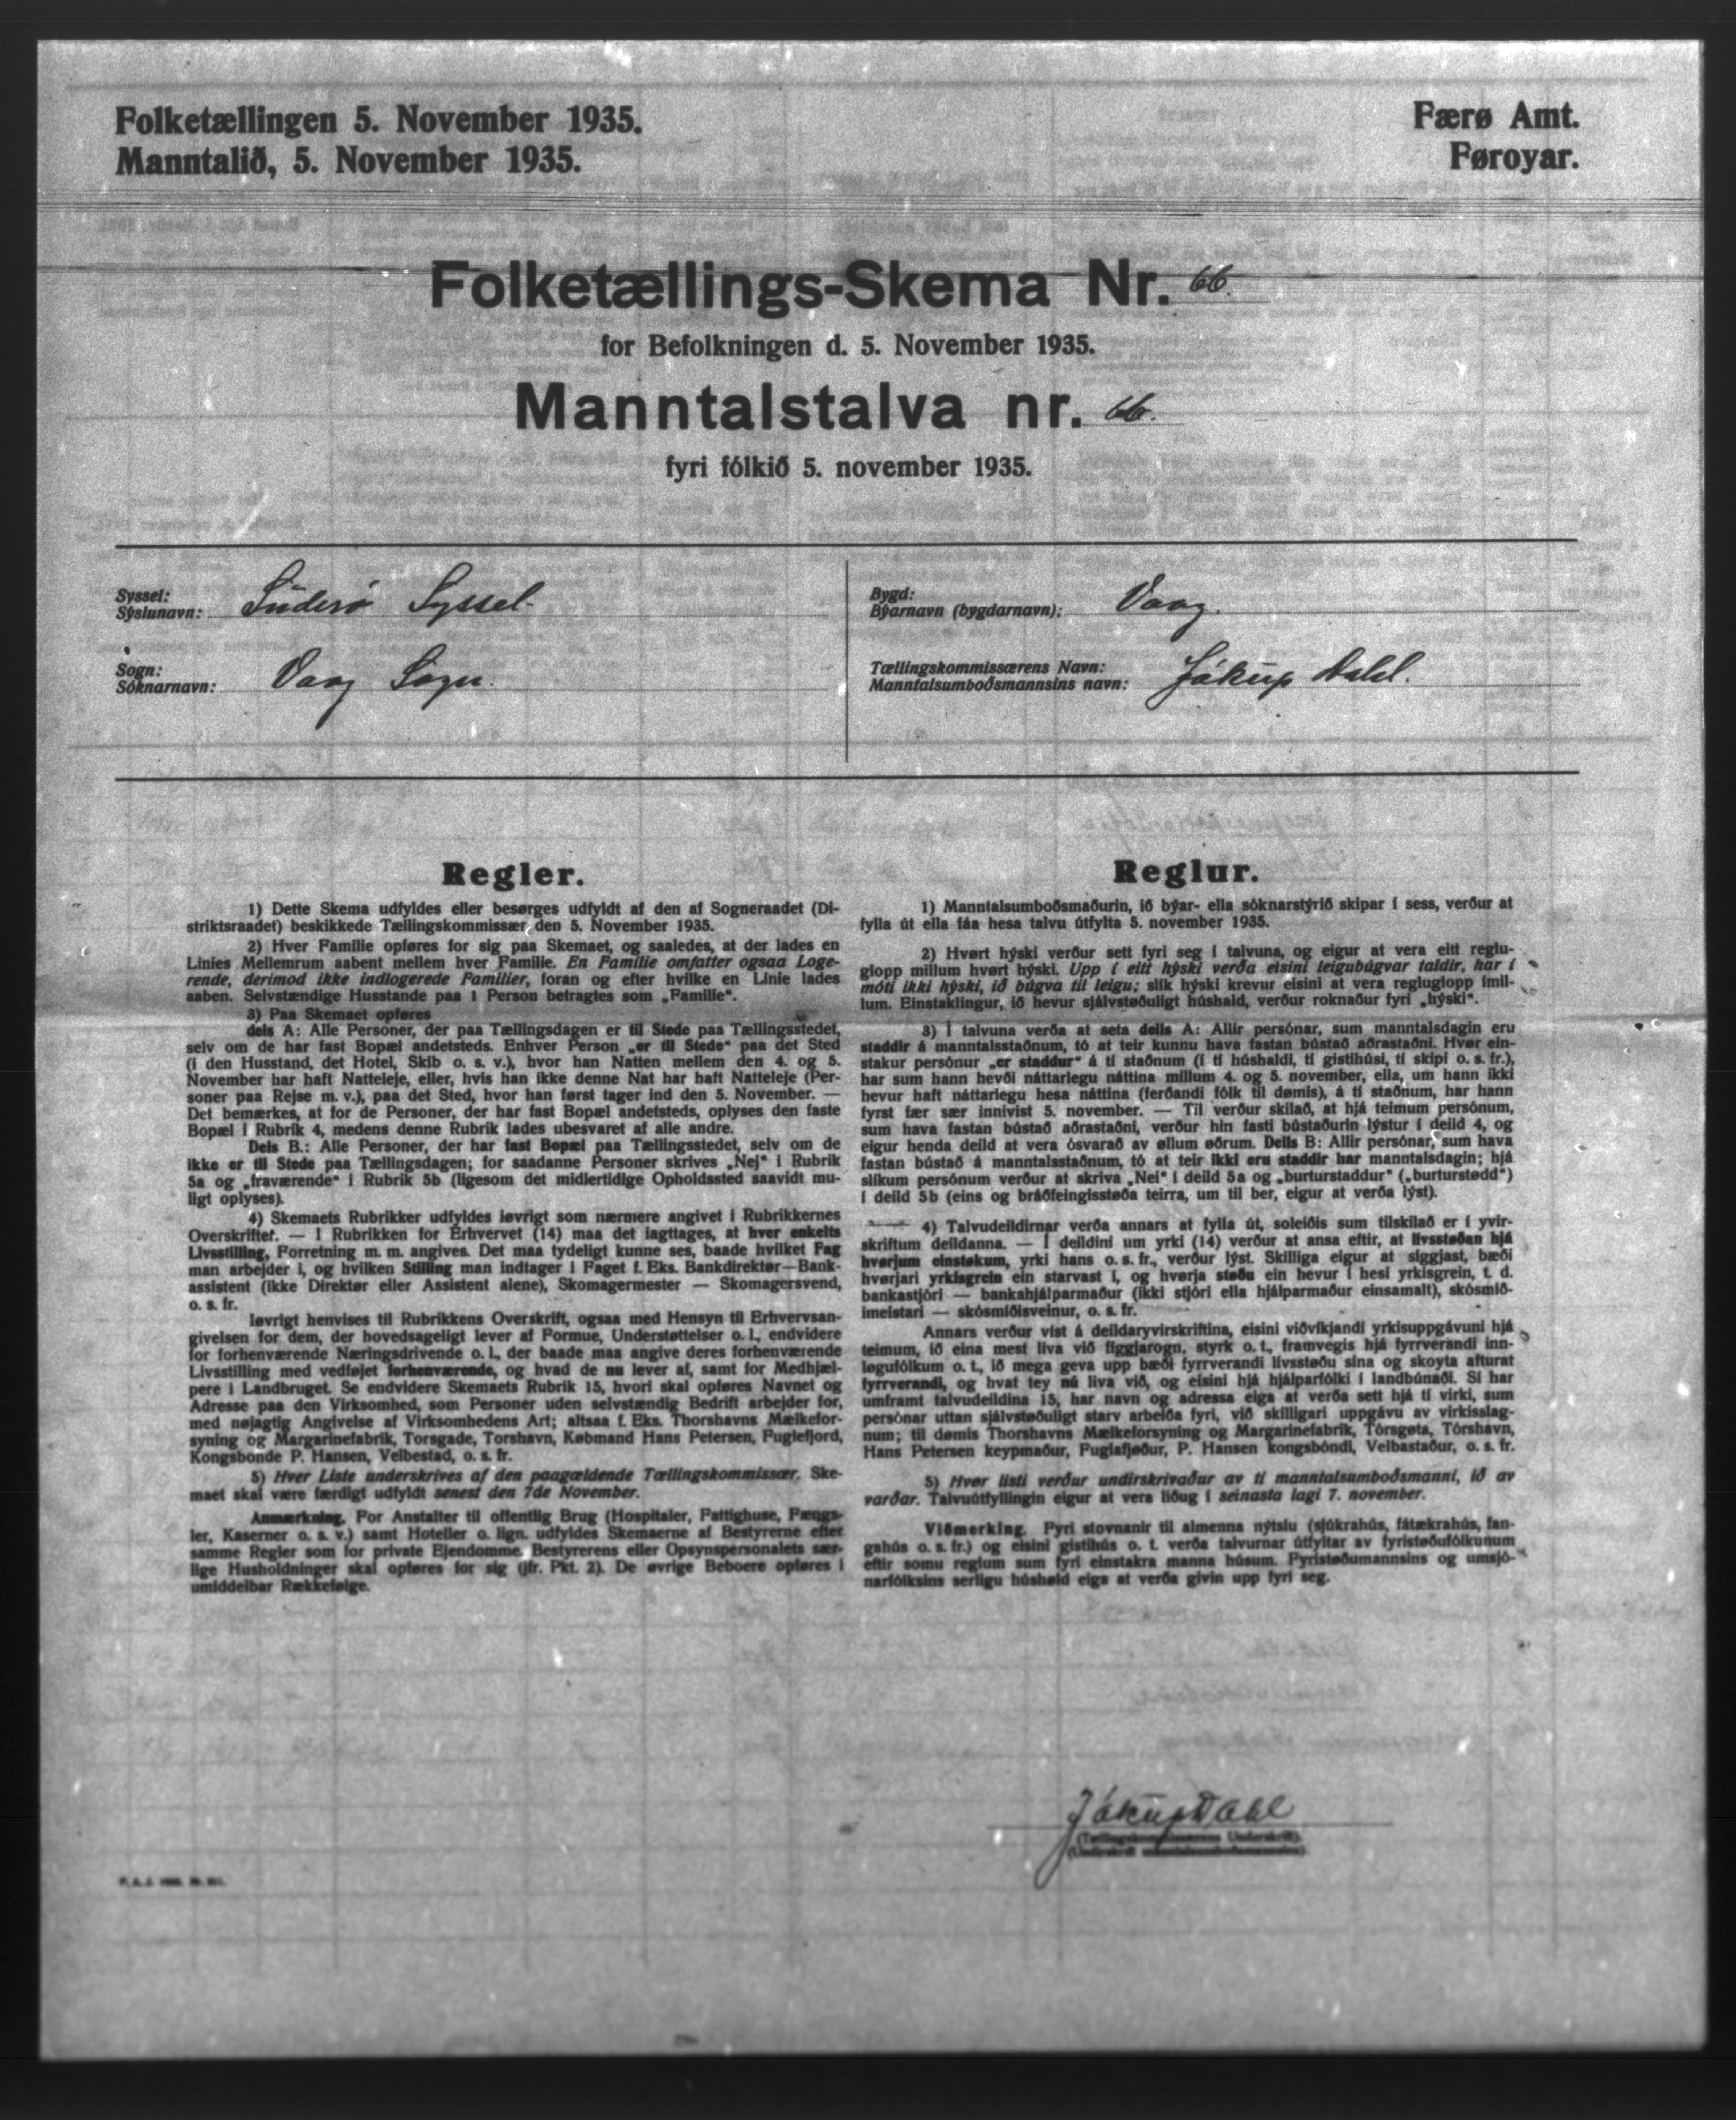 Folketællingen 5. November 1935.
Manntalið, 5. November 1935.
Færø Amt.
Føroyar.
Folketællings-Skema Nr. 66.
for Befolkningen d. 5. November 1935.
Manntalstalva nr. 66.
fyri fólkið 5. november 1935.
Syssel:
Sýslunavn: Süderø Syssel.
Sogn:
Sóknarnavn: Vaag Sogn.
Bygd:
Býarnavn (bygdarnavn): Vaag.
Tællingskommissærens Navn:
Manntalsumboðsmannsins navn: Jákup Dahl.
Regler.
1) Dette Skema udfyldes eller besørges udfyldt af den af Sogneraadet (Di-
striktsraadet) beskikkede Tællingskommissær den 5. November 1935.
2) Hver Familie opføres for sig paa Skemaet, og saaledes, at der lades en
Linies Mellemrum aabent mellem hver Familie. En Familie omfatter ogsaa Loge-
rende, derimod ikke indlogerede Familier, foran og efter hvilke en Linie lades
aaben. Selvstændige Husstande paa 1 Person betragtes som „Familie“.
3) Paa Skemaet opføres
dels A: Alle Personer, der paa Tællingsdagen er til Stede paa Tællingsstedet,
selv om de har fast Bopæl andetsteds. Enhver Person „er til Stede“ paa det Sted
(i den Husstand, det Hotel, Skib o. s. v.), hvor han Natten mellem den 4. og 5.
November har haft Natteleje, eller, hvis han ikke denne Nat har haft Natteleje (Per-
soner paa Rejse m. v.), paa det Sted, hvor han først tager ind den 5. November. —
Det bemærkes, at for de Personer, der har fast Bopæl andetsteds, oplyses den faste
Bopæl i Rubrik 4, medens denne Rubrik lades ubesvaret af alle andre.
Dels B.: Alle Personer, der har fast Bopæl paa Tællingsstedet, selv om de
ikke er til Stede paa Tællingsdagen; for saadanne Personer skrives „Nej“ i Rubrik
5a og „fraværende“ i Rubrik 5b (ligesom det midlertidige Opholdssted saavidt mu-
ligt oplyses).
4) Skemaets Rubrikker udfyldes iøvrigt som nærmere angivet i Rubrikkernes
Overskrifter. — I Rubrikken for Erhvervet (14) maa det iagttages, at hver enkelts
Livsstilling, Forretning m. m. angives. Det maa tydeligt kunne ses, baade hvilket Fag
man arbejder i, og hvilken Stilling man indtager i Faget f. Eks. Bankdirektør—Bank-
assistent (ikke Direktør eller Assistent alene), Skomagermester — Skomagersvend,
o. s. fr.
Iøvrigt henvises til Rubrikkens Overskrift, ogsaa med Hensyn til Erhvervsan-
givelsen for dem, der hovedsageligt lever af Formue, Understøttelser o. l., endvidere
for forhenværende Næringsdrivende o. l., der baade maa angive deres forhenværende
Livsstilling med vedføjet forhenværende, og hvad de nu lever af, samt for Medhjæl-
pere i Landbruget. Se endvidere Skemaets Rubrik 15, hvori skal opføres Navnet og
Adresse paa den Virksomhed, som Personer uden selvstændig Bedrift arbejder for,
med nøjagtig Angivelse af Virksomhedens Art; altsaa f. Eks. Thorshavns Mælkefor-
syning og Margarinefabrik, Torsgade, Torshavn, Købmand Hans Petersen, Fuglefjord,
Kongsbonde P. Hansen, Velbestad, o. s. fr.
5) Hver Liste underskrives af den paagældende Tællingskommissær. Ske-
maet skal være færdigt udfyldt senest den 7de November.
Anmærkning. For Anstalter til offentlig Brug (Hospitaler, Fattighuse, Fængs-
ler, Kaserner o. s. v.) samt Hoteller o. lign. udfyldes Skemaerne af Bestyrerne efter
samme Regler som for private Ejendomme. Bestyrerens eller Opsynspersonalets sær-
lige Husholdninger skal opføres for sig (jfr. Pkt. 2). De øvrige Beboere opføres i
umiddelbar Rækkefølge.
Reglur.
1) Manntalsumboðsmaðurin, ið býar- ella sóknarstýrið skipar í sess, verður at
fylla út ella fáa hesa talvu útfylta 5. november 1935.
2) Hvørt hýski verður sett fyri seg í talvuna, og eigur at vera eitt reglu-
glopp millum hvørt hýski. Upp í eitt hýski verða eisini leigubúgvar taldir, har í
móti ikki hýski, ið búgva til leigu; slík hýski krevur eisini at vera regluglopp imil-
lum. Einstaklingur, ið hevur sjálvstøðuligt húshald, verður roknaður fyri „hýski“.
3) Í talvuna verða at seta deils A: Allir persónar, sum manntalsdagin eru
staddir á manntalsstaðnum, tó at teir kunnu hava fastan bústað aðrastaðni. Hvør ein-
stakur persónur „er staddur“ á tí staðnum (í tí húshaldi, tí gistihúsi, tí skipi o. s. fr.),
har sum hann hevði náttarlegu náttina millum 4. og 5. november, ella, um hann ikki
hevur haft náttarlegu hesa náttina (ferðandi fólk til dømis), á tí staðnum, har hann
fyrst fær sær innivist 5. november. — Til verður skilað, at hjá teimum persónum,
sum hava fastan bústað aðrastaðni, verður hin fasti bústaðurin lýstur í deild 4, og
eigur henda deild at vera ósvarað av øllum øðrum. Deils B: Allir persónar, sum hava
fastan bústað á manntalsstaðnum, tó at teir ikki eru staddir har manntalsdagin; hjá
slíkum persónum verður at skriva „Nei“ í deild 5a og „burturstaddur“ („burturstødd“)
í deild 5b (eins og bráðfeingisstøða teirra, um til ber, eigur at verða lýst).
4) Talvudeildirnar verða annars at fylla út, soleiðis sum tilskilað er í yvir-
skriftum deildanna. — Í deildini um yrki (14) verður at ansa eftir, at livsstøðan hjá
hvørjum einstøkum, yrki hans o. s. fr., verður lýst. Skilliga eigur at siggjast, bæði
hvørjari yrkisgrein ein starvast í, og hvørja støðu ein hevur í hesi yrkisgrein, t. d.
bankastjóri — bankahjálparmaður (ikki stjóri ella hjálparmaður einsamalt), skósmið-
imeistari — skósmiðisveinur, o. s. fr.
Annars verður víst á deildaryvirskriftina, eisini viðvíkjandi yrkisuppgávuni hjá
teimum, ið eina mest liva við figgjarogn, styrk o. t., framvegis hjá fyrrverandi inn-
løgufólkum o. t., ið mega geva upp bæði fyrrverandi livsstøðu sína og skoyta afturat
fyrrverandi, og hvat tey nú liva við, og eisini hjá hjálparfólki í landbúnaði. Sí har
umframt talvudeildina 15, har navn og adressa eiga at verða sett hjá tí virki, sum
persónar uttan sjálvstøðuligt starv arbeiða fyri, við skilligari uppgávu av virkisslag-
num; til dømis Thorshavns Mælkeforsyning og Margarinefabrik, Tórsgøta, Tórshavn,
Hans Petersen keypmaður, Fuglafjøður, P. Hansen kongsbóndi, Velbastaður, o. s. fr.
5) Hvør listi verður undirskrivaður av tí manntalsumboðsmanni, ið av
varðar. Talvuútfyllingin eigur at vera liðug í seinasta lagi 7. november.
Viðmerking. Fyri stovnanir til almenna nýtslu (sjúkrahús, fátækrahús, fan-
gahús o. s. fr.) og eisini gistihús o. t. verða talvurnar útfyltar av fyristøðufólkunum
eftir somu reglum sum fyri einstakra manna húsum. Fyristøðumannsins og umsjó-
narfólksins serligu húshøld eiga at verða givin upp fyri seg.
Jákup Dahl
(Tællingskommissærens Underskrift).
(Undirskrift manntalsumboðsmannsins)